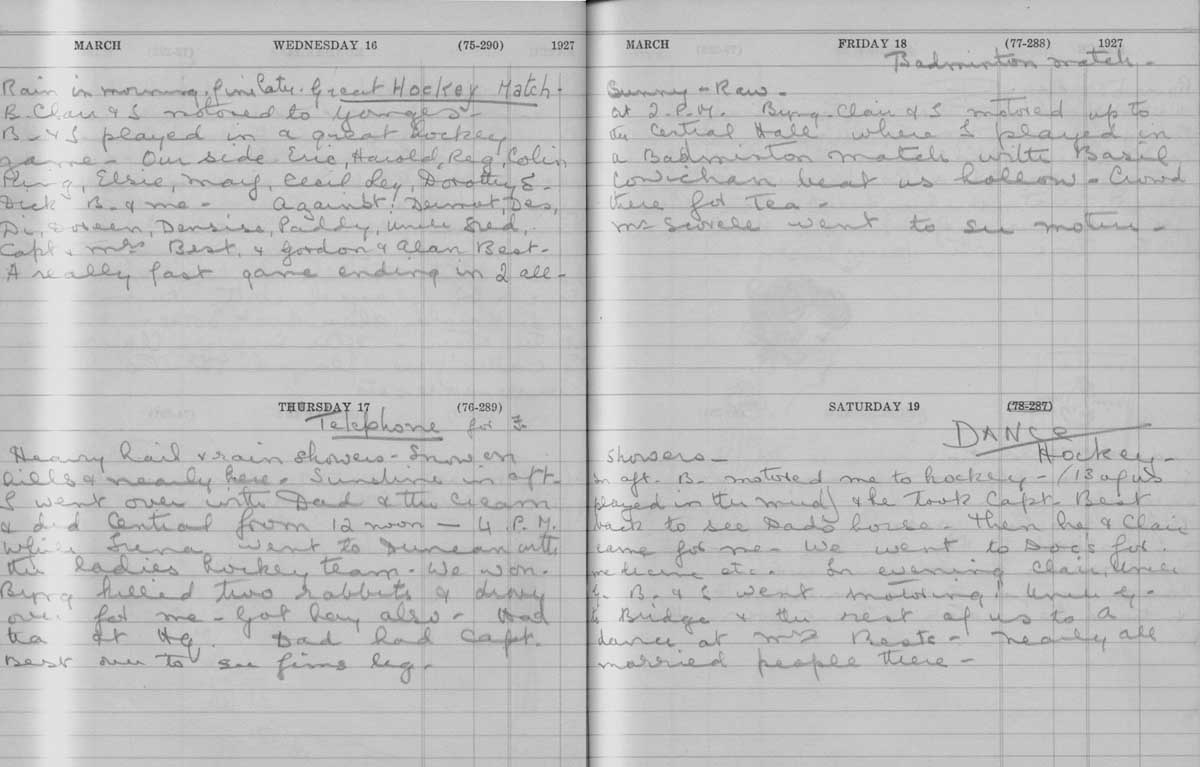 MARCH WEDNESDAY 16 (75-290) 1927
Rain in morning, fine later. Great Hockey Match.
B. Clair & I motored to Younges.
B. & I played in a great hockey
game. Our side Eric, Harold, Reg, Colin
Elsie, May, Cecil Ley, Dorothy E.
Dick B. & me - Against! Dermot, Des,
Di, Doreen, Denise, Paddy, Uncle Fred,
Capt & Mrs Best, & Gordon & Alan Best.
A really fast game ending in 2 all -
THURSDAY 17 (76-289)
Telephone for
Heavy hail & rain showers - Snow on
hills & nearly here. Sunshine in aft.
I went over with Dad & the cream
& did Central from 12 noon - 4 P.M.
while Irena went to Duncan with
the ladies hockey team. We won.
Byng killed two rabbits & drove
over for me - Got hay also - Had
tea at Hq. Dad had Capt.
Best over to see Jims leg -
MARCH FRIDAY 18 (77-288) 1927
Badminton match -
Sunny - Raw -
At 2. P.M. Byng, Clair & I motored up to
the Central Hall where I played in
a Badminton match with Basil.
Cowichan beat us hollow - Crowd
there for Tea -
Mrs Scovell went to see mother -
SATURDAY 19 (78-287)
DANCE
Hockey -
Showers -
In aft. B. motored me to hockey - (13 of us
played in the mud) & he took Capt. Best
back to see Dad's horse - Then he & Clair
came for me. We went to Doc's for
medicine etc. In evening Clair, Uncle
B. & I went motoring! Uncle G.
to Bridge & the rest of us to a
dance at Mrs Bests - nearly all
married people there -